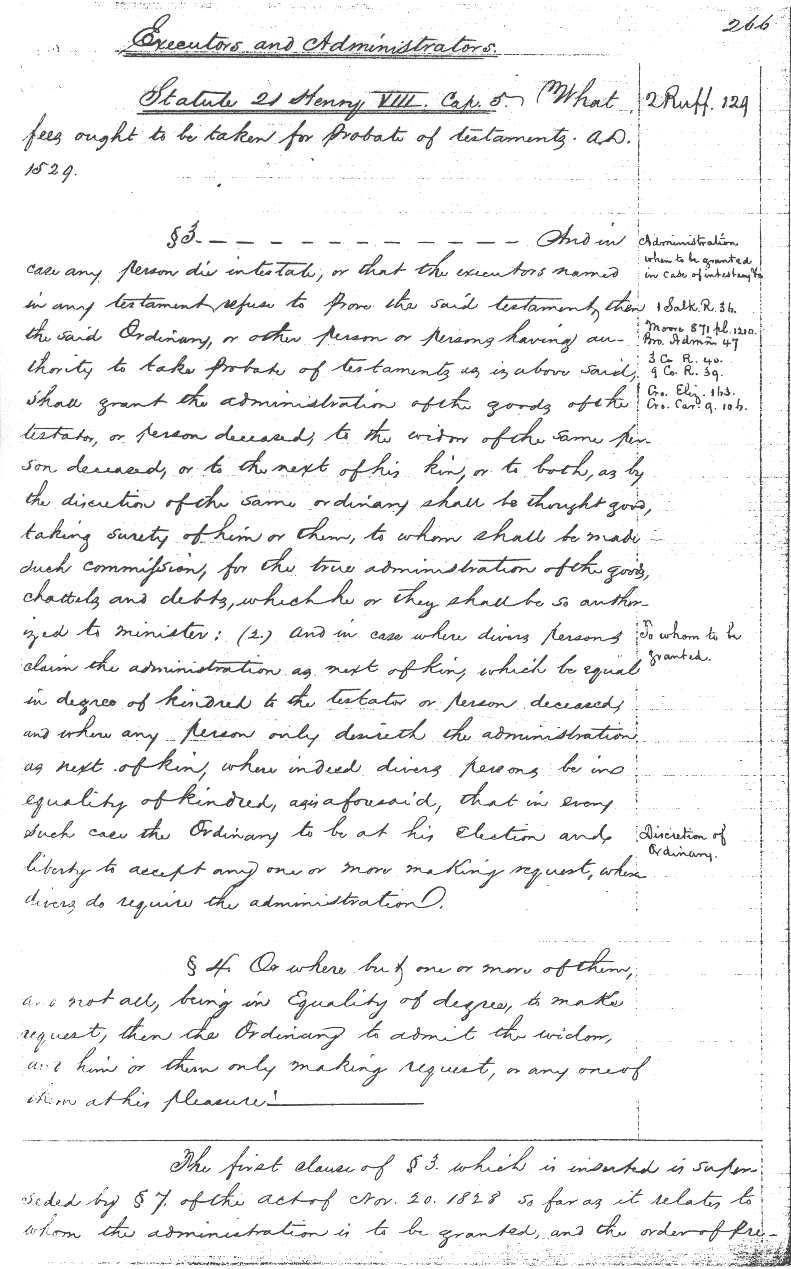 266
Executors and Administrators.
Statute 21 Henry VIII. Cap. 5. What
fees ought to be taken for Probate of testaments. A.D.
1529.
2 Ruff. 129
§3. — — — — — — — — — — — — And in
case any person die intestate, or that the executors named
in any testament refuse to prove the said testament, then
the said Ordinary, or other person or persons having au-
thority to take Probate of testaments as is above said,
shall grant the administration of the goods of the
testator, or person deceased, to the widow of the same per-
son deceased, or to the next of his kin, or to both, as by
the discretion of the same ordinary shall be thought good,
taking surety of him or them, to whom shall be made
such commission, for the true administration of the goods,
chattels and debts, which he or they shall be so author-
ized to minister: (2.) And in case where divers persons
claim the administration as next of kin, which be equal
in degree of kindred to the testator or person deceased,
and where any person only desireth the administration
as next of kin, where indeed divers persons be in
equality of kindred, as is aforesaid, that in every
such case the Ordinary to be at his Election and
liberty to accept any one or more making request, where
divers do require the administration.
Administration
when to be granted
in case of intestacy &c
1 Salk. R. 36.
Moore 871 pl. 1210.
Bro. Admin 47
3 Co R. 40.
9 Co. R. 39.
Cro. Eliz. 163.
Cro. Car. 9. 106.
To whom to be
granted.
Discretion of
Ordinary.
§ 4. Or where but one or more of them,
and not all, being in Equality of degree, to make
request, then the Ordinary to admit the widow,
and him or them only making request, or any one of
them at his pleasure.
The first clause of §3. which is inserted is super-
seded by §7. of the act of Nov. 20. 1828 so far as it relates to
whom the administration is to be granted, and the order of Pre-